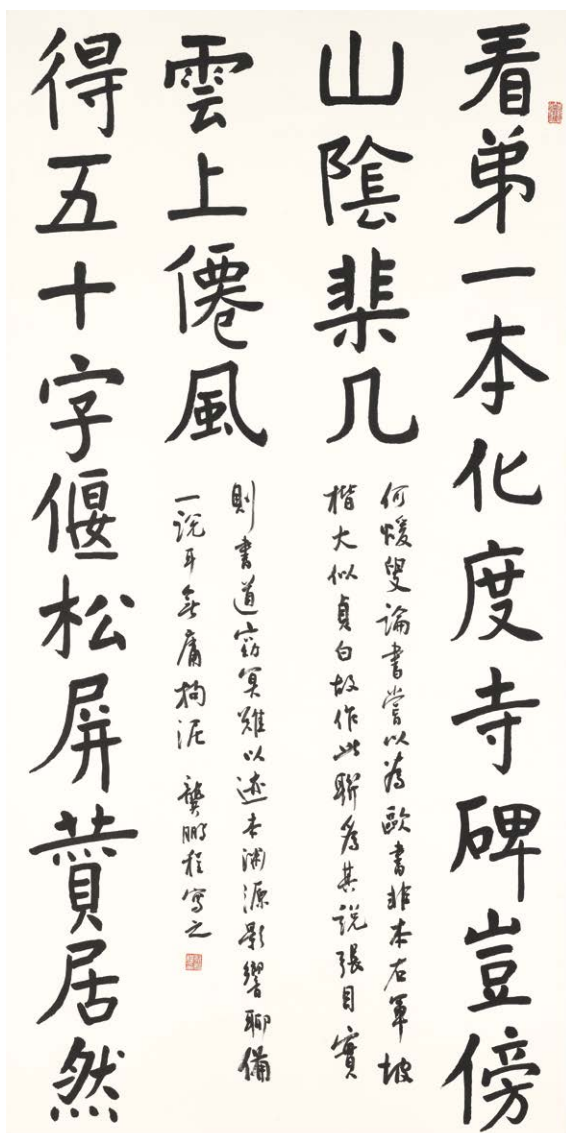 看弟一本化度寺碑豈傍
山陰棐几
得五十字偃松屏蕡居然
雲上僊風
何煖叟論書嘗以為歐書非本右軍坡
楷大似貞白故作此聯為其說張目實
則書道窈冥難以迹本淵源影響聊備
一說耳無庸拘泥 龔鵬程寫之